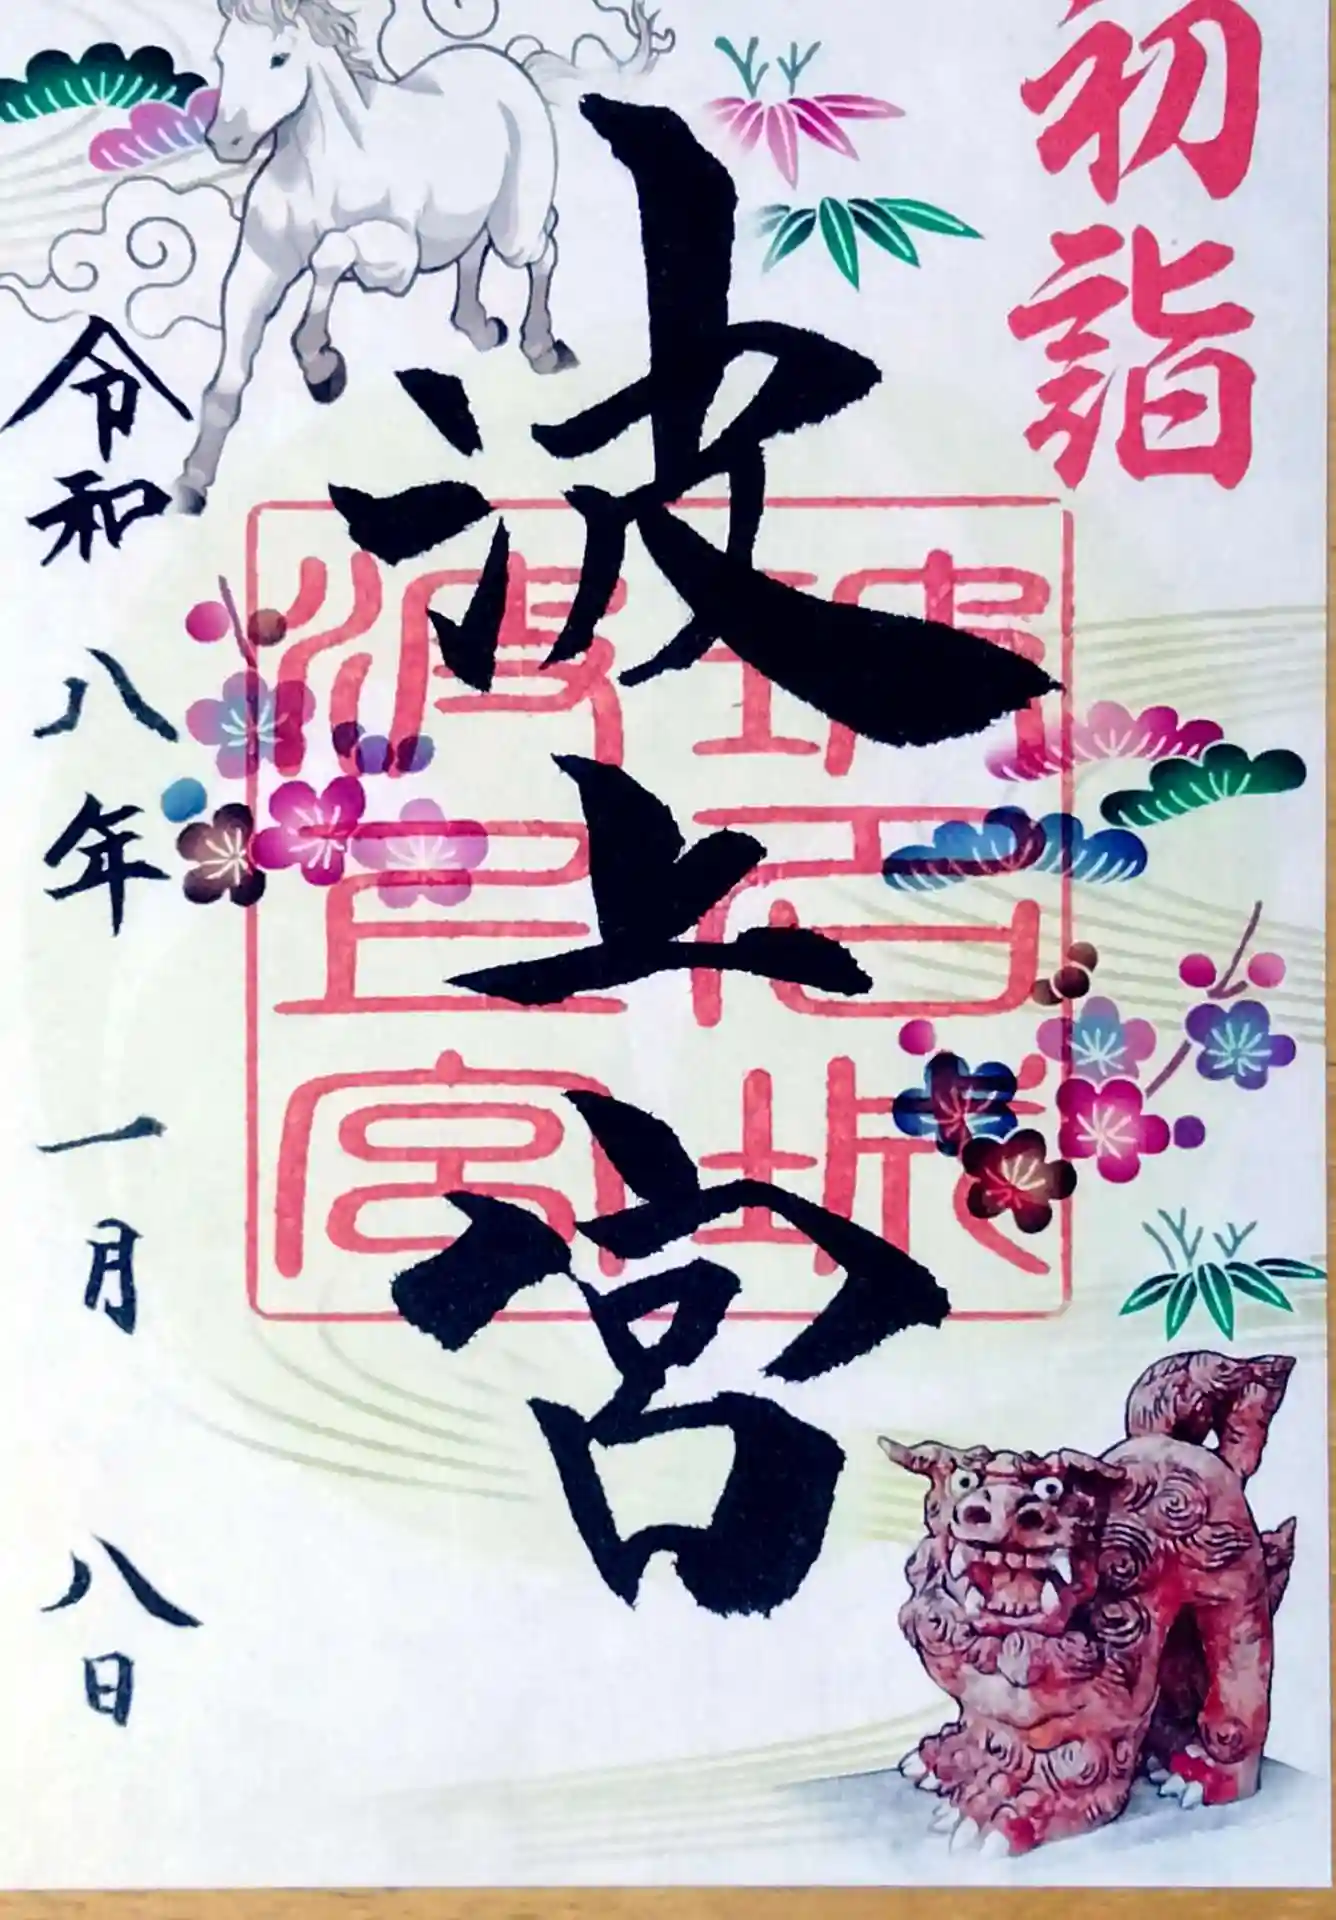 初詣
波上宮
琉球
石城
波上宮
令和八年一月八日